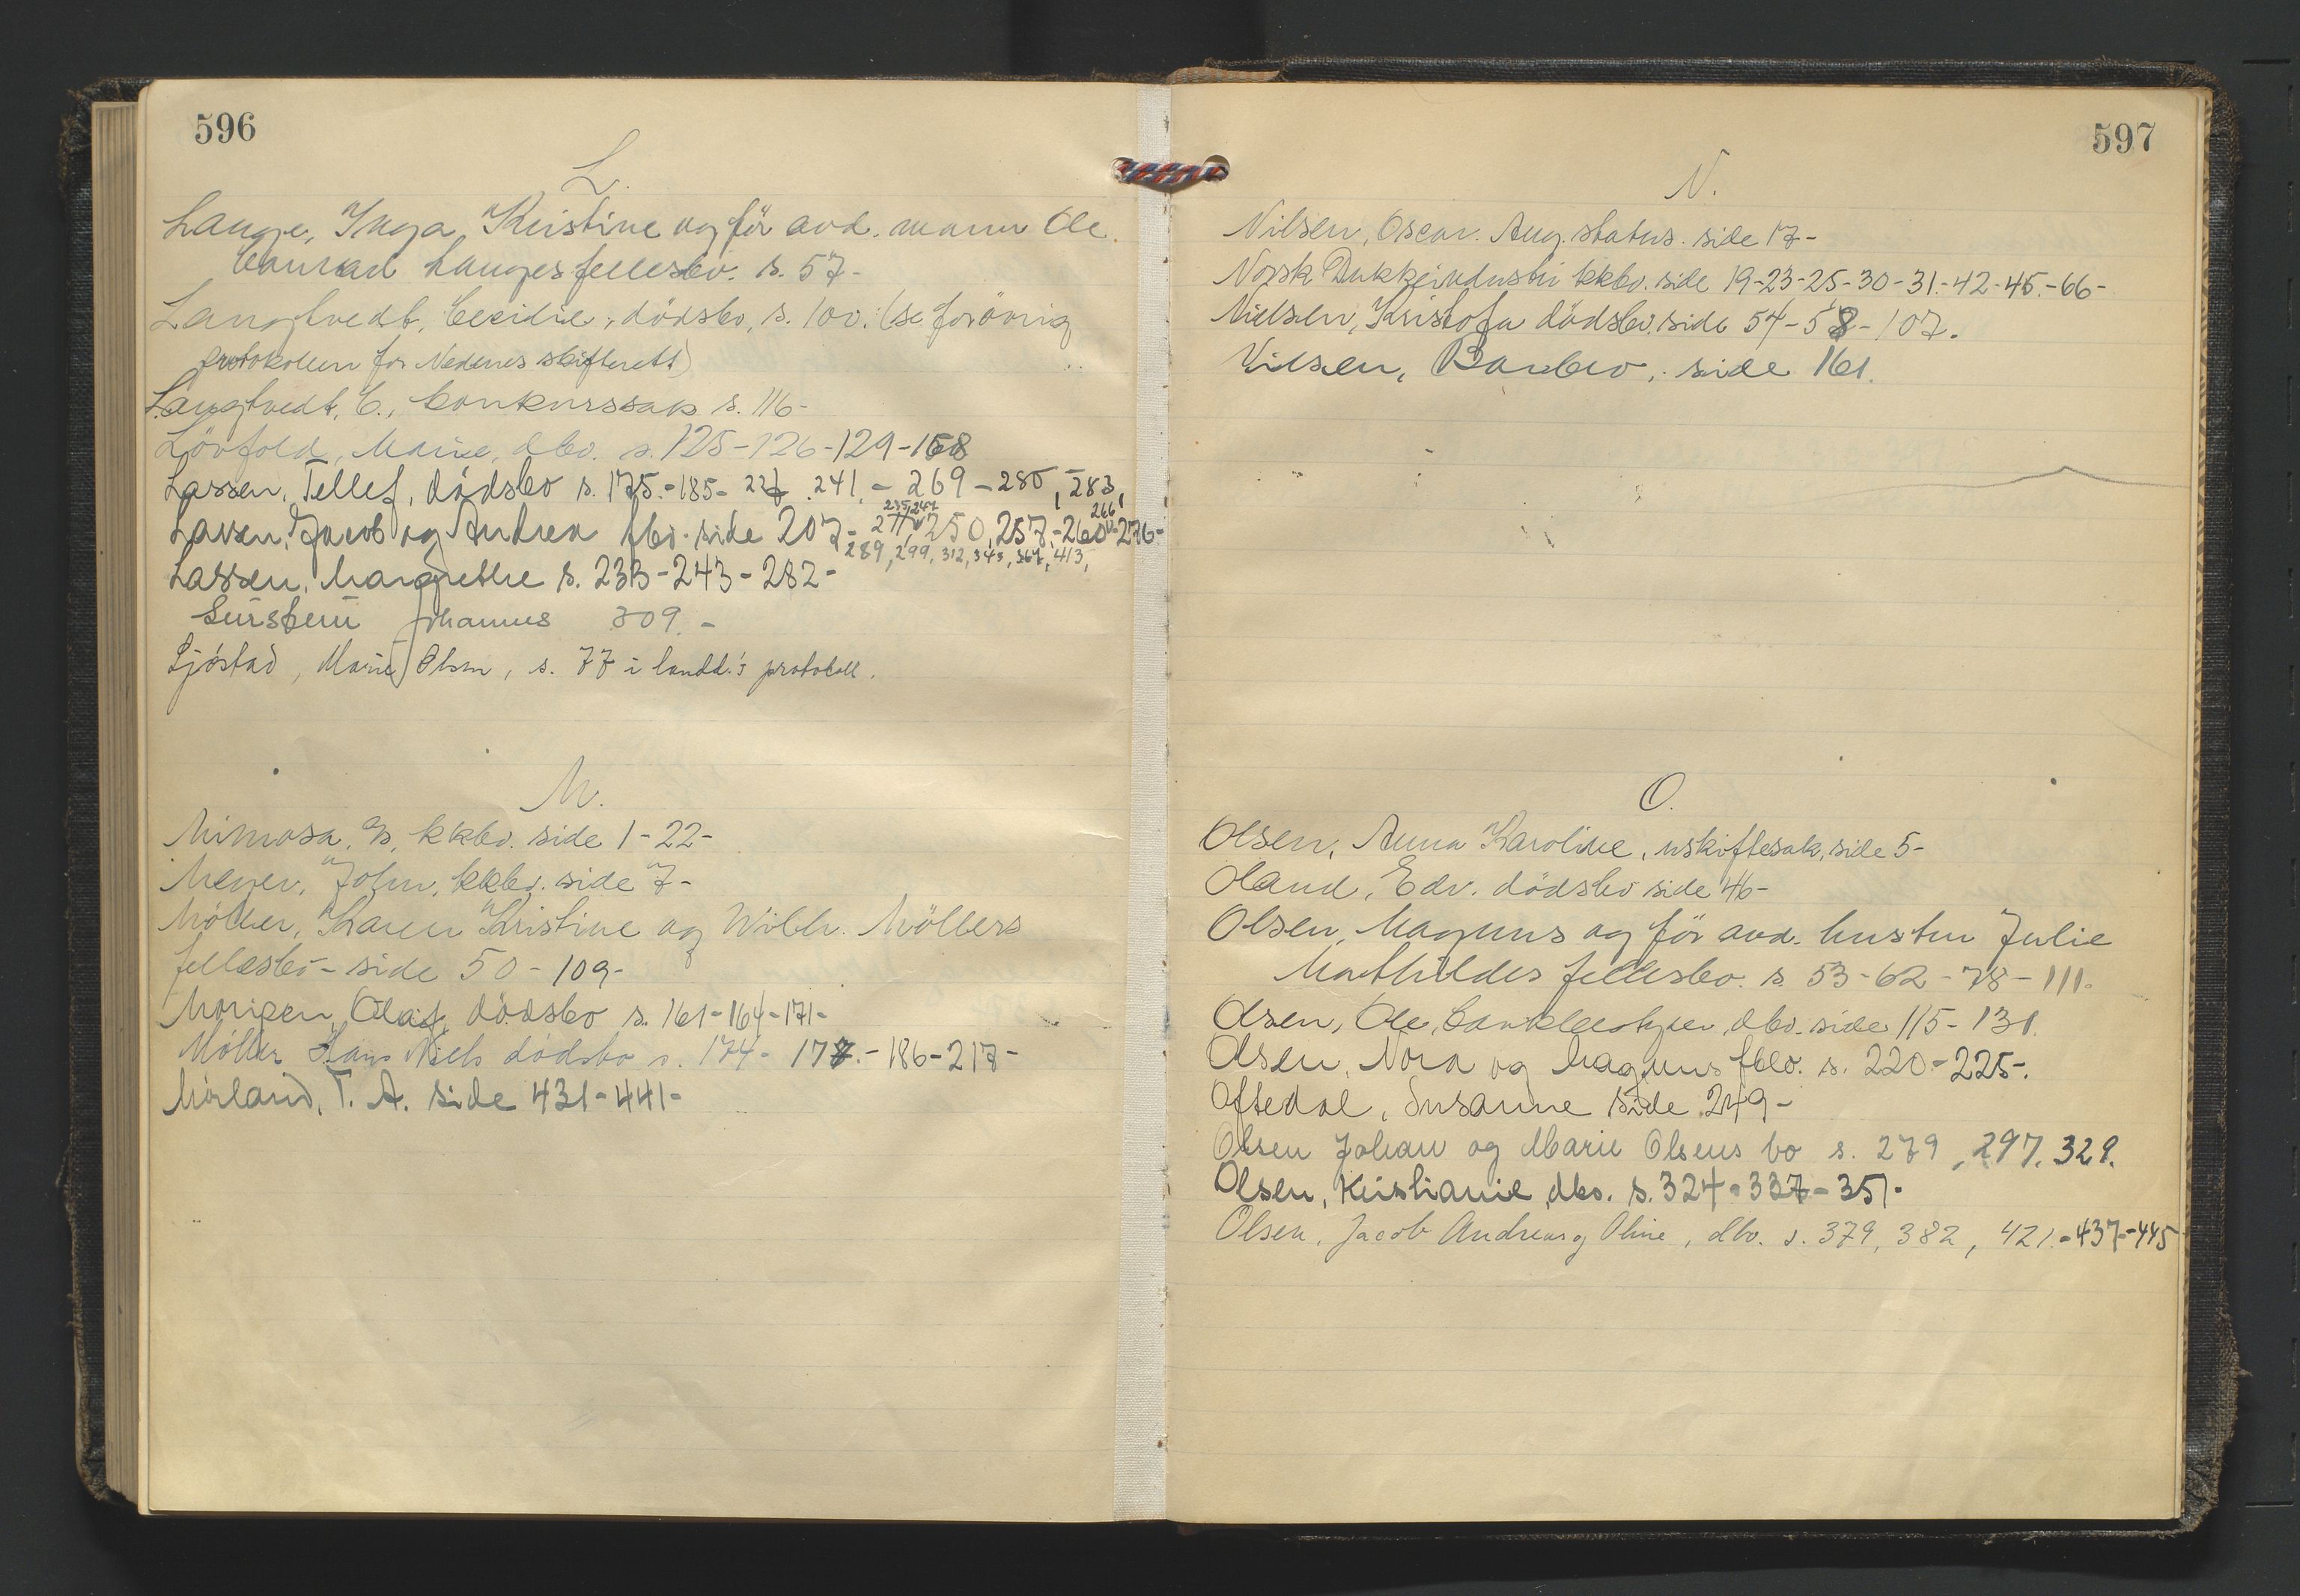 596
L.
Lange, Inga Kristine og før avd. mann Ole
Conrad Langes fellesbo. s. 57-
Langtvedt, Cecilie, dödsbo, s. 100. (se forövrig
protokollen for Nedenes skifterett)
Langtvedt, C., konkurssak s. 116-
Lövfold, Marie, dbo. s. 125-126-129-158
Lassen, Tellef, dödsbo s. 175.-185- 227 .241.- 269-280, 283,
235,247 266,
Larsen, Jacob og Andrea fbo. side 207- 250, 257,-260-276-
289, 299, 312, 343, 367, 413,
Lassen, Margrethe s. 233-243-282-
Johannes 309.-
Ljöstad, Marie Olsen, s. 77 i landd.'s protokoll.
M.
Mimosa, A/S, kkbo. side 1-22-
Meyer, John, kkbo. side 7-
Möller, Karen Kristine og Wilh. Möllers
fellesbo- side 50-109-
Olaf, dödsbo s. 161-164-171-
Möller Hans Niels dödsbo s. 174- 178.-186-217-
Mörland, T. A. side 431-441-
597
N.
Nilsen, Oscar. Aug. status. side 17-
Norsk Dukkeindustri kkbo. side 19-23-25-30-31.-42-45.-66-
Nielsen, Kristofa dödsbo. side 54-58-107.
Nilsen, Barbro, side 161.
O.
Olsen, Anna Karoline, uskiftesak, side 5-
Oland, Edv. dödsbo side 46-
Olsen, Magnus og før avd. hustru Julie
Mathildes fellesbo. s. 53-62-78-111.
Olsen, Ole, dbo. side 115-131.
Olsen, Nora og Magnus fbo. s. 220-225-.
Oftedal, Susanne side 249-
Olsen Johan og Marie Olsens bo s. 279, 297, 329.
Olsen, Kristianie, dbo. s. 324-337-351-
Olsen, Jacob Andreas og Oline, dbo. s. 379, 382, 421.-437-445